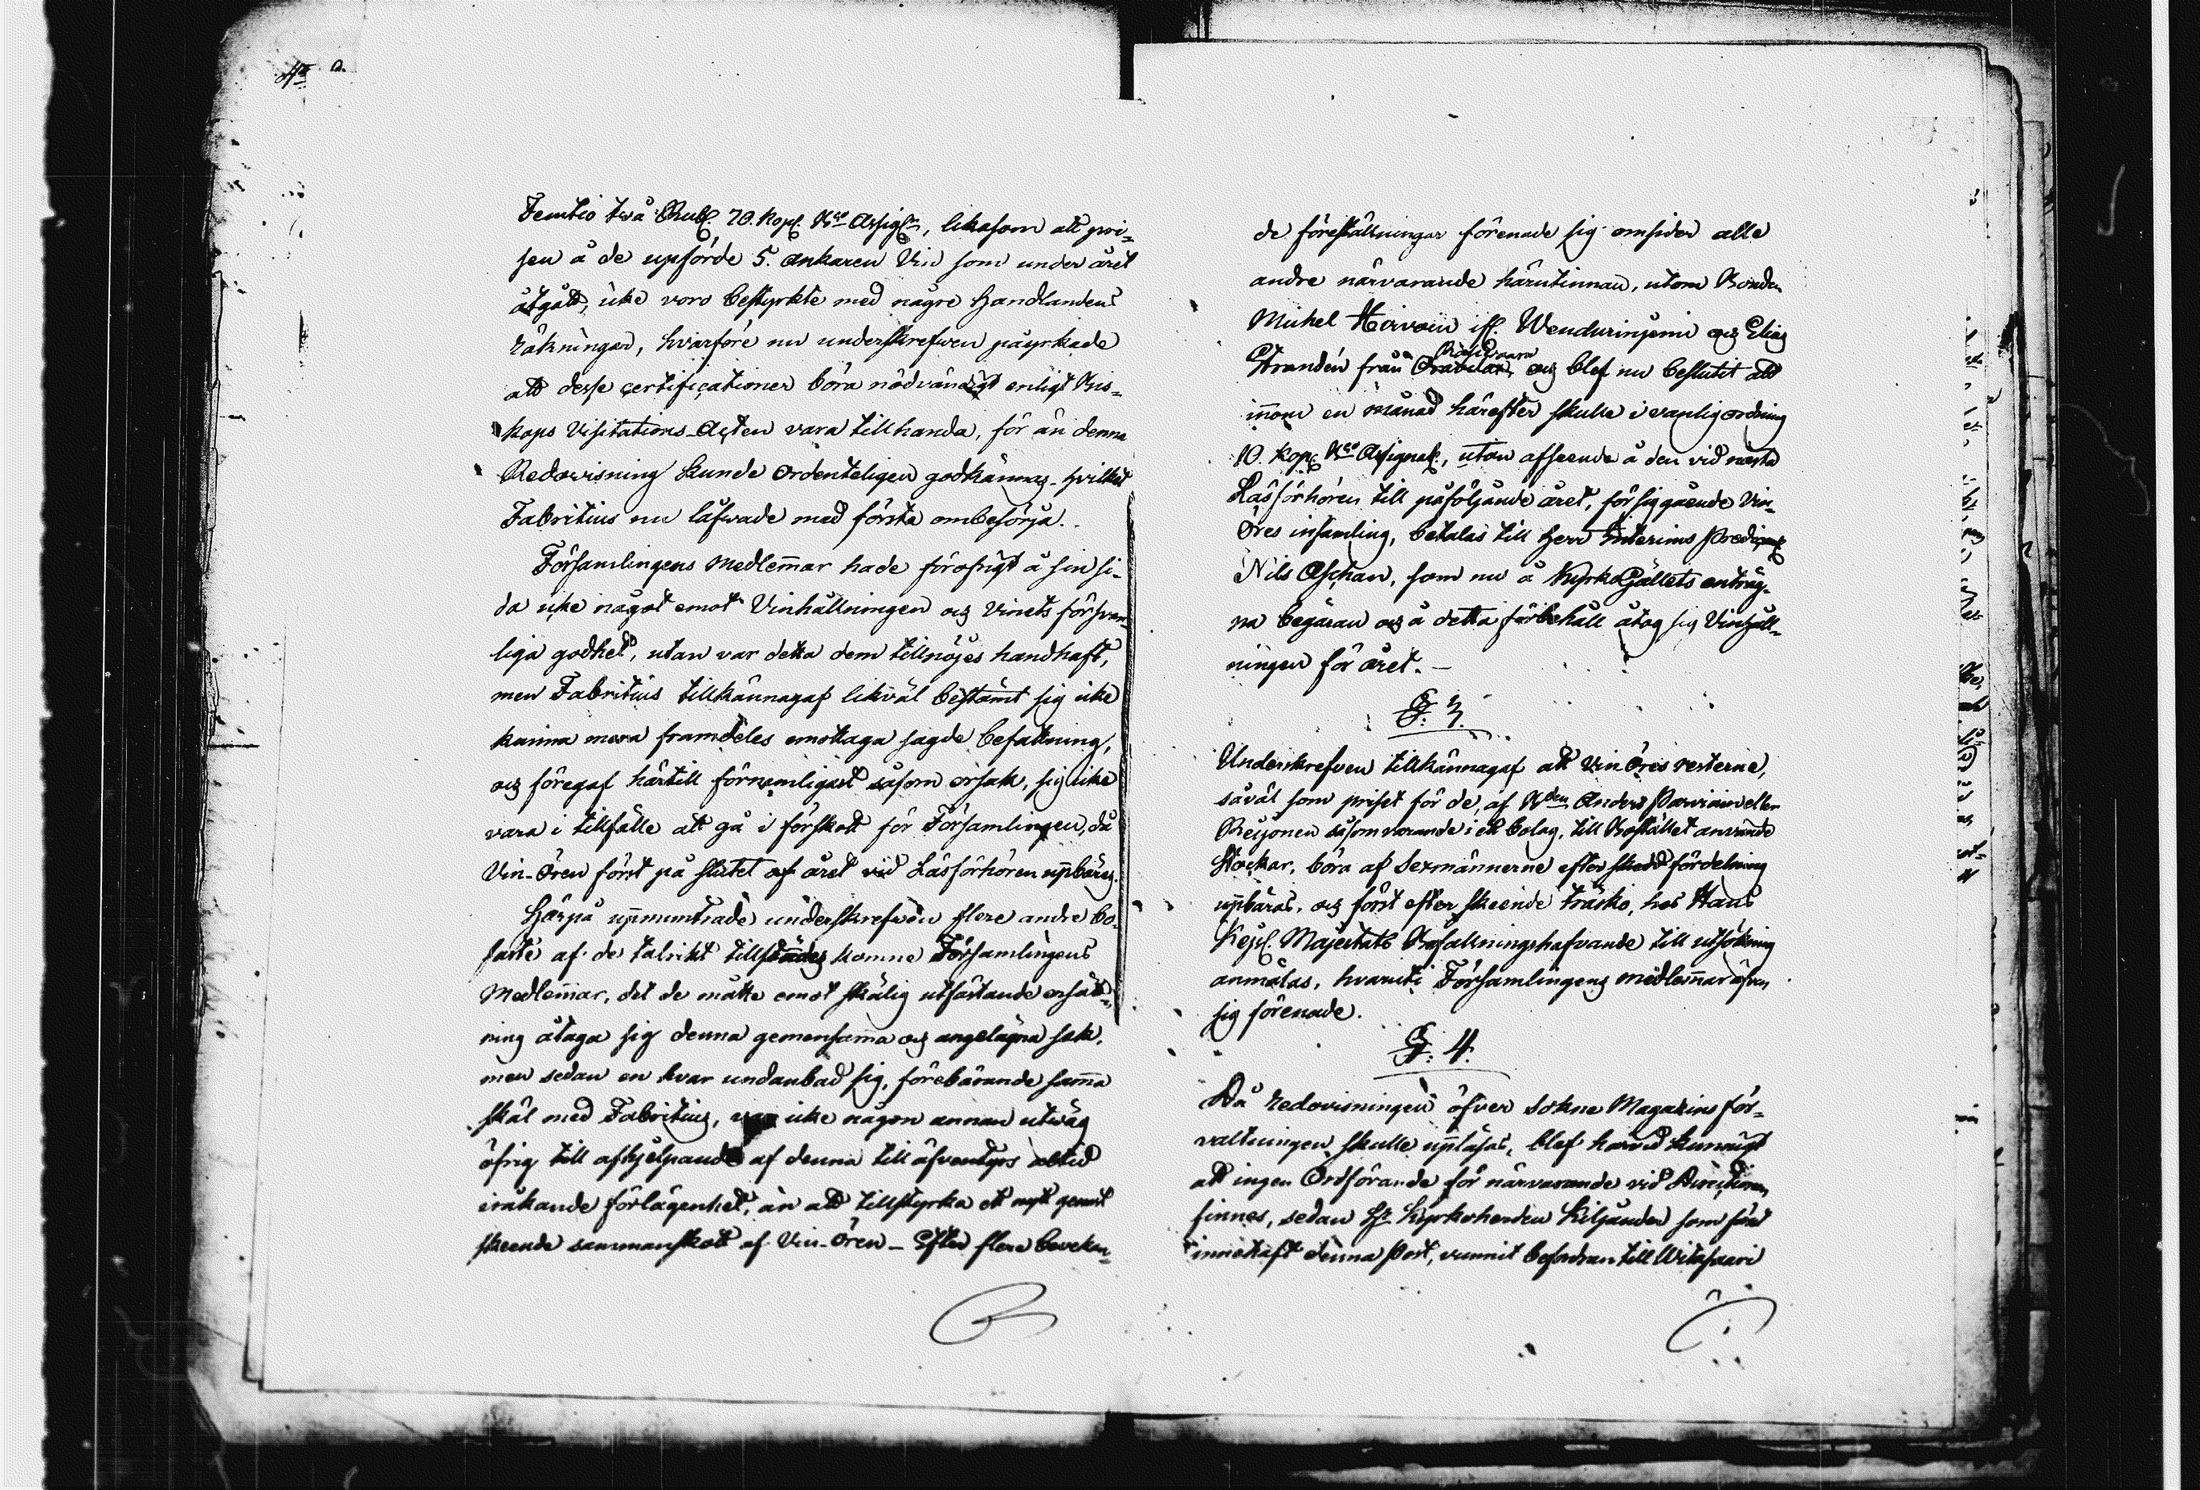 2.
Femtio twå Rub. 70. Kop. Bco Assign, likasom att pri-
sen å de upförde 5. ankaren Vin som under året
åtgått, icke voro bestyrkte med någre Handlandens
räkningar, hvarföre nu underskrefwen påyrkade
att desse certificationer böra nödvändigt enligt Bis-
kops Visitations-Acten vara tillhanda, för än denna
Redovisning kunde ordenteligen godkännas. hvilket
Fabritius nu låfwade med första ombesörja.
Församlingens Medlemar hade föröfrigt å sin si-
da icke något emot Vinhållningen och vinets försvar-
liga godhet, utan var detta dem tillnöjes handhaft,
men Fabritius tillkännagaf likväl bestämt sig icke
kunna mera framdeles emottaga sagde befattning,
och föregaf härtill förnemligast såsom orsak, sig icke
vara i tillfälle att gå i förskott för Församlingen, då
Vin-Ören först på slutet af året vid Läsförhören upbäres.
Härpå upmuntrade underskrefwen flere andre bo-
faste af de talrikt komne Församlingens
Medlemar, det de måtte emot skälig utfästande ersätt-
ning åtaga sig denna gemensama och angelägna sak,
men sedan en hvar undanbad sig, förebärande sama
skäl med Fabritius, var icke någon annan utwäg
öfrig till afhjelpande af denna till äfventyrs altid
iråkande förlägenhet, än att tillstyrka ett nytt genast
skeende sammanskott af Vin-Ören – Efter flere bevekan-
de föreställningar förenade sig omsider alle
andre närvarande härutinnan, utom Bonden
Michel Hoivain ifr. Wendurinjemi och Elias
Strandén från och blef nu beslutit att
inom en månad härefter skulle i vanlig ordning
10. Kop. Bco Assignat., utan afseende å den vid næsta
Läsförhören till påföljande året, försiggående Vin-
Öres insamling, betalas till Herr Interims Predikant
Nils Aschan, som nu å Kyrko Gällets enträg-
na begäran och å detta förbehåll åtog sig Vinhåll-
ningen för året. –
§: 3.
Underskrefven tillkännagaf att Vin Öres resterne,
såväl som priset för de, af Bden Anders Parviain eller
Reijonen såsom varande i ett bolag, till Bostället använde
Stockar, böra af Sexmännerne efter skedd fördelning
upbäras, och först efter skeende träsko, hos Hans
Kejs. Majestäts Befallningshafvande till utsökning
anmälas, hvaruti Församlingens medlemar äfven
sig förenade.
§: 4.
Då redovisningen öfver Sokne Magazins för-
valtningen skulle upläsas, blef härvid kunnigt
att ingen Ordförande för närvarande vid Directionen
finnes, sedan Hr Kyrkoherden Kiljander som förut
innehaft denna Post, vunnit befordran till Witasaari